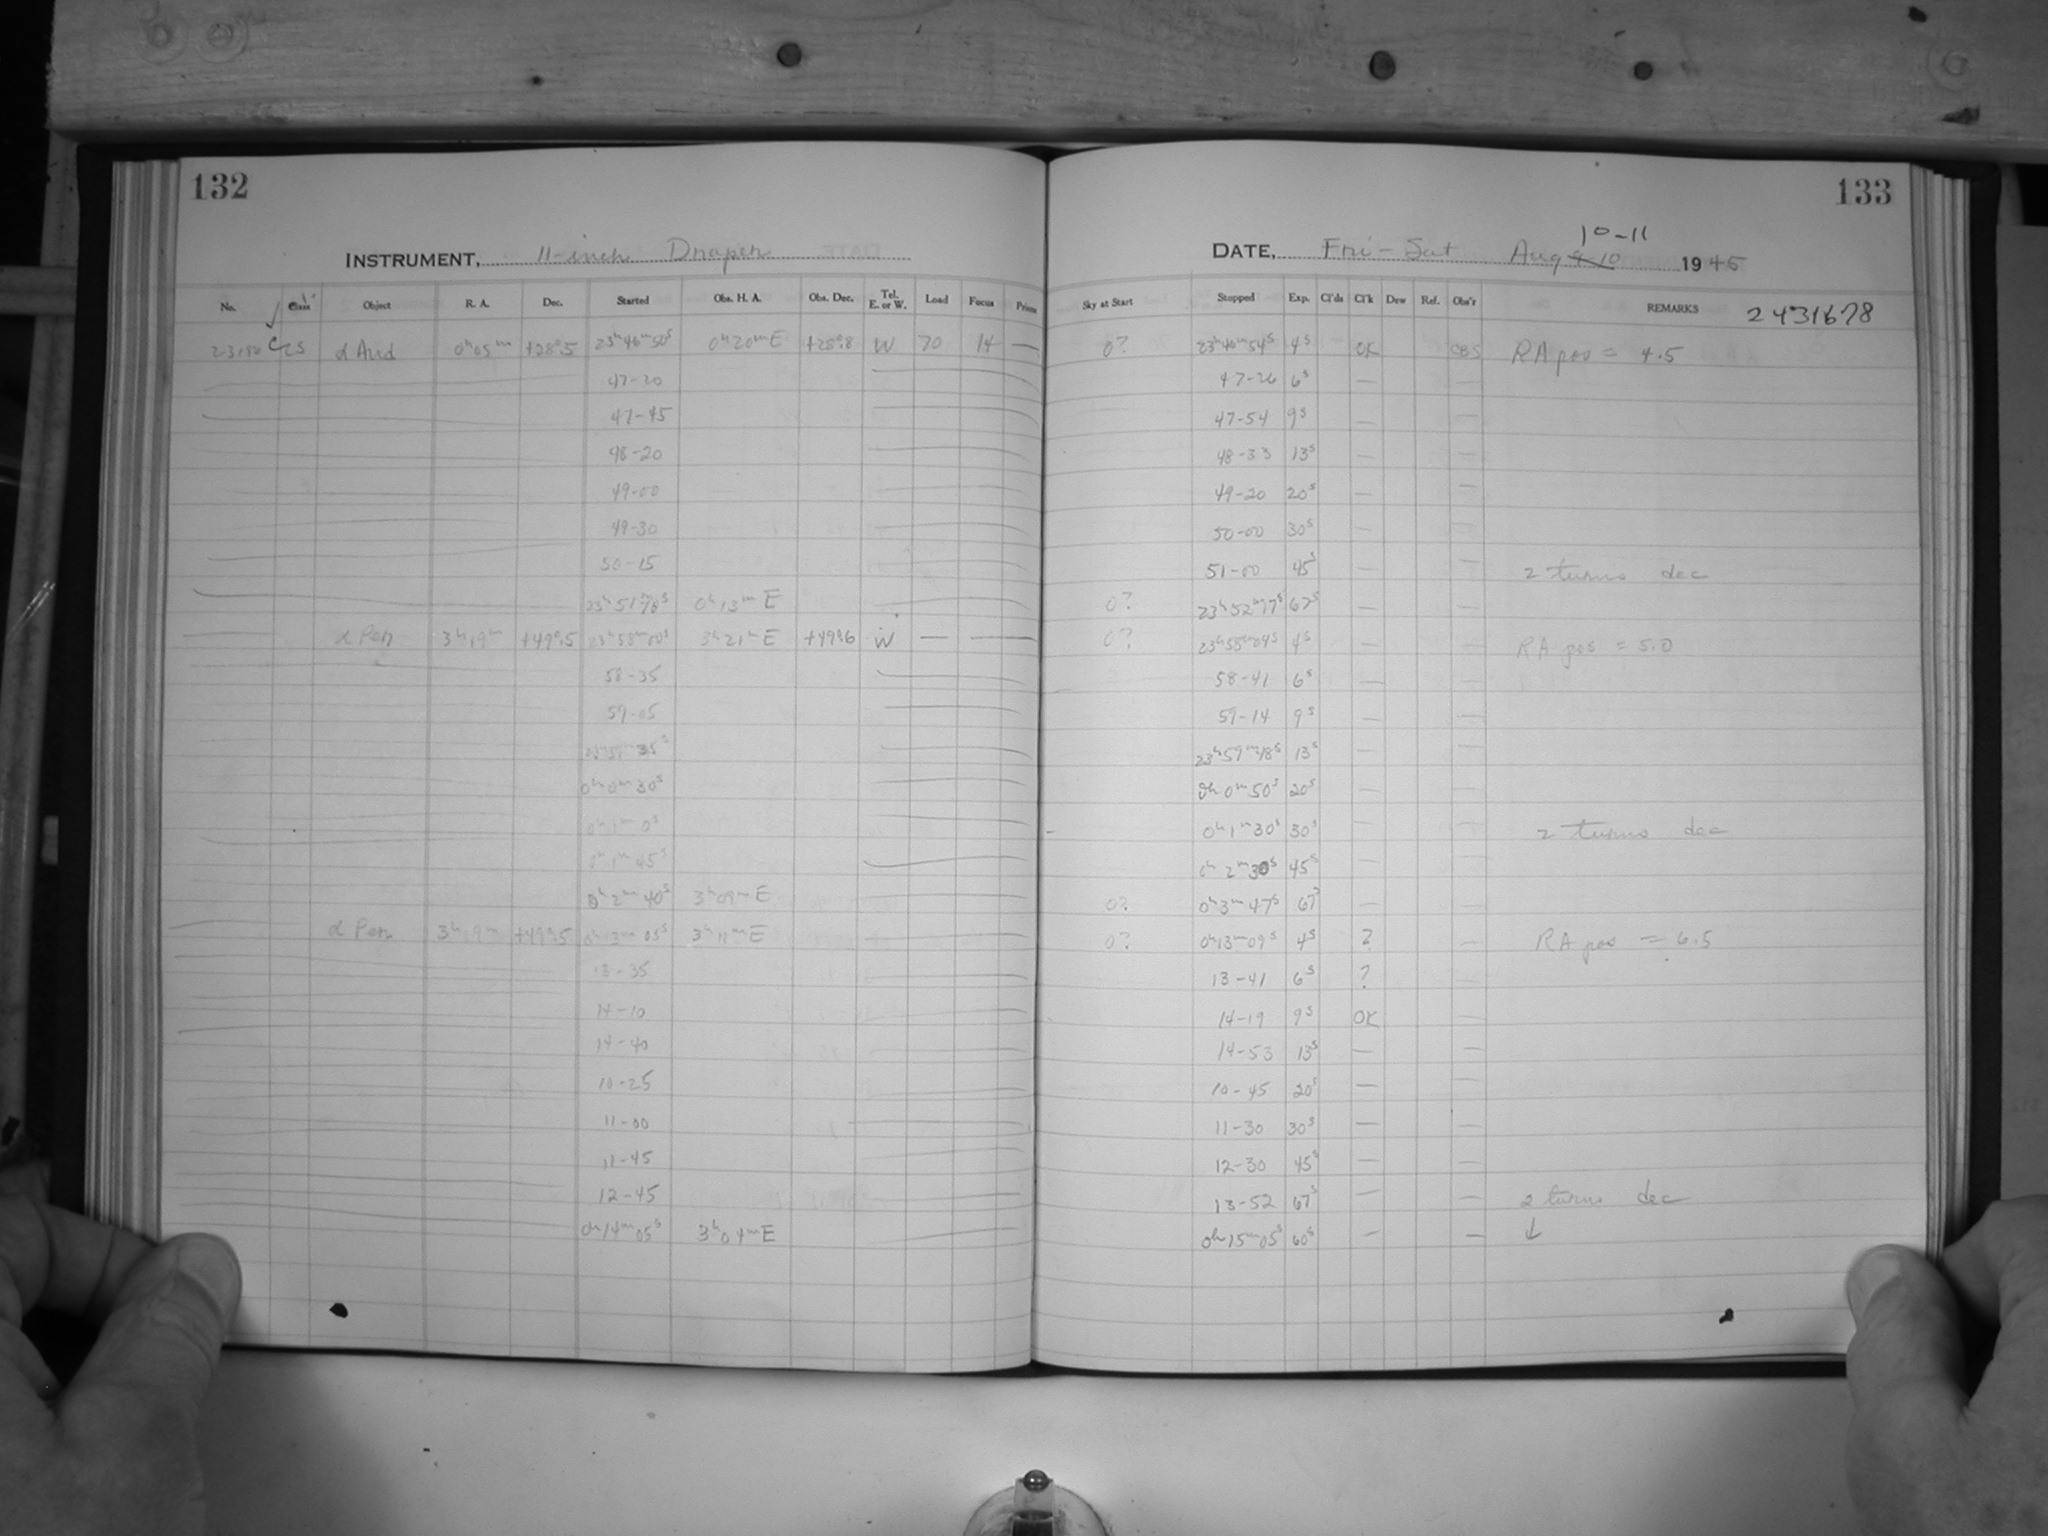 132
INSTRUMENT, 11-inch Draper
No. Class Object R. A. Dec. Started Obs. H. A. Obs. Dec. Tel. E. or W. Load Focus Prism
α And 0ʰ05ᵐ +28°.5 23ʰ46ᵐ50ˢ 0ʰ20ᵐE +28°.8 W 70 14 —
47-20
47-45
48-20
49-00
49-30
50-15
0ʰ13ᵐE
α Per 3ʰ19ᵐ +49°.5 23ʰ58ᵐ00ˢ 3ʰ21ᵐE +49°.6 W — —
58-35
59-05
35ˢ
0ʰ0ᵐ30ˢ
0ʰ1ᵐ0ˢ
0ʰ1ᵐ45ˢ
0ʰ2ᵐ40ˢ 3ʰ09ᵐE
α Per 3ʰ19ᵐ +49°.5 0ʰ13ᵐ05ˢ 3ʰ11ᵐE
13-35
14-10
14-40
10-25
11-00
11-45
12-45
0ʰ14ᵐ05ˢ 3ʰ04ᵐE
133
10-11
DATE, Fri-Sat Aug 9-10 1945
Sky at Start Stopped Exp. Cl'ds Cl'k Dew Ref. Obs'r REMARKS 2431678
0? 23ʰ46ᵐ54ˢ 4ˢ OK CBS RA pos = 4.5
47-26 6ˢ —
47-54 9ˢ — —
48-33 13ˢ — —
49-20 20ˢ — —
50-00 30ˢ — —
51-00 45ˢ — — 2 turns dec
0? 67ˢ — —
0? 23ʰ58ᵐ04ˢ 4ˢ — — RA pos = 5.0
58-41 6ˢ — —
59-14 9ˢ — —
23ʰ59ᵐ48ˢ 13ˢ — —
0ʰ0ᵐ50ˢ 20ˢ — —
0ʰ1ᵐ30ˢ 30ˢ — — 2 turns dec
0ʰ2ᵐ30ˢ 45ˢ — —
0? 0ʰ3ᵐ47ˢ 67ˢ — —
0? 0ʰ13ᵐ09ˢ 4ˢ ? — RA pos = 6.5
13-41 6ˢ ?
14-19 9ˢ OK —
14-53 13ˢ — —
10-45 20ˢ — —
11-30 30ˢ — —
12-30 45ˢ — —
13-52 67ˢ — — 2 turns dec
0ʰ15ᵐ05ˢ 60ˢ — — ↓